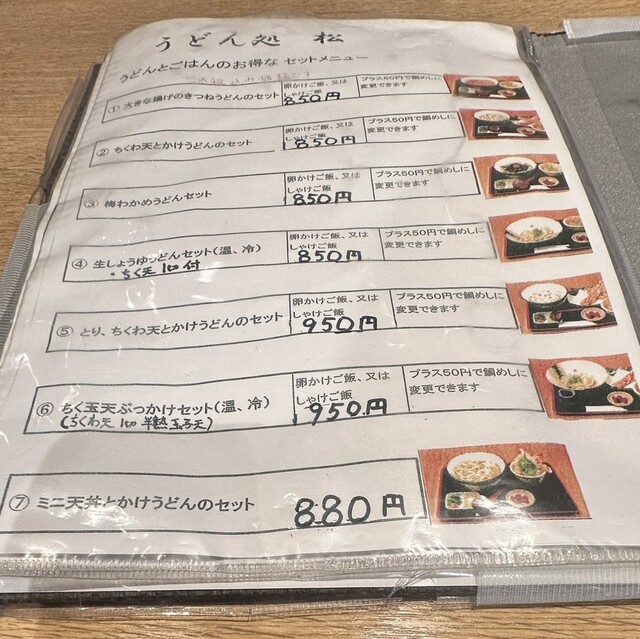 うどん処 松
うどんとごはんのお得な セットメニュー
① 大きな揚げのきつねうどんのセット
卵かけご飯、又は
しゃけご飯
850円
プラス50円で鯛めしに
変更できます
② ちくわ天とかけうどんのセット
卵かけご飯、又は
しゃけご飯
850円
プラス50円で鯛めしに
変更できます
③ 梅わかめうどんセット
卵かけご飯、又は
しゃけご飯
850円
プラス50円で鯛めしに
変更できます
④ 生しょうゆうどんセット(温、冷)
・ちく天 1ヶ付
卵かけご飯、又は
しゃけご飯
850円
プラス50円で鯛めしに
変更できます
⑤ とり、ちくわ天とかけうどんのセット
卵かけご飯、又は
しゃけご飯
950円
プラス50円で鯛めしに
変更できます
⑥ ちく玉天ぶっかけセット(温、冷)
(ちくわ天 1ヶ 半熟玉子天)
卵かけご飯、又は
しゃけご飯
950円
プラス50円で鯛めしに
変更できます
⑦ ミニ天丼とかけうどんのセット
880円